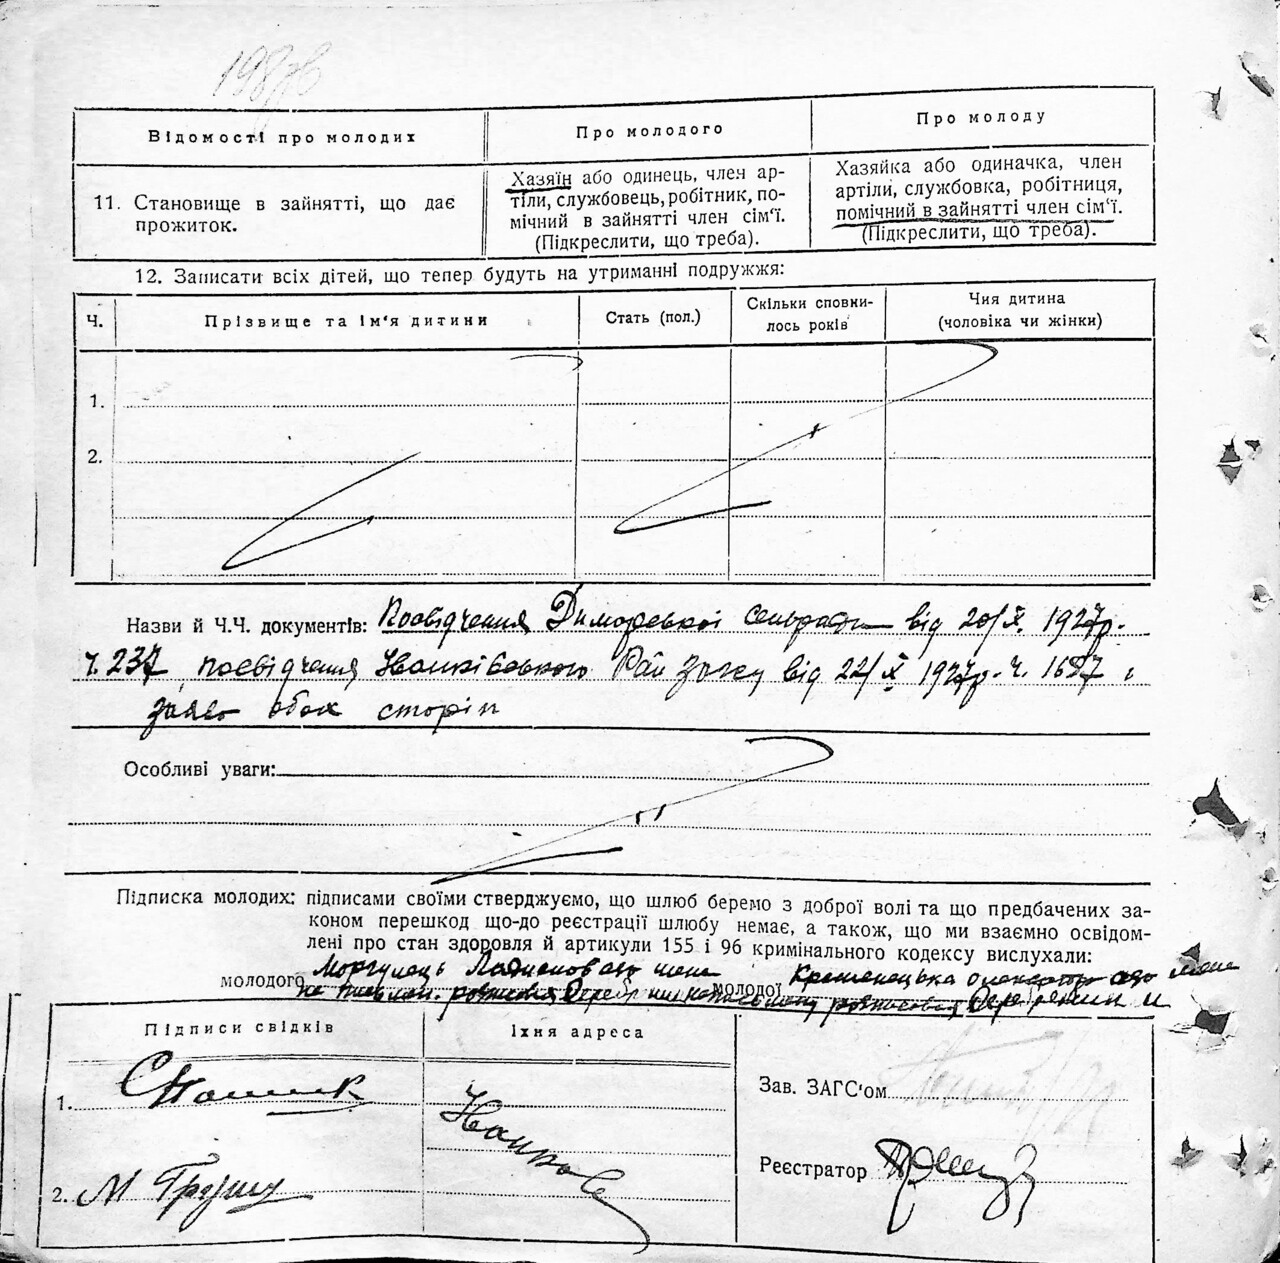 Відомості про молодих
Про молодого
Про молоду
11. Становище в зайнятті, що дає
прожиток.
Хазяїн або одинець, член ар-
тіли, службовець, робітник, по-
мічний в зайнятті член сім'ї.
(Підкреслити, що треба).
Хазяйка або одиначка, член
артіли, службовка, робітниця,
помічний в зайнятті член сім'ї.
(Підкреслити, що треба).
12. Записати всіх дітей, що тепер будуть на утриманні подружжя:
Ч.
Прізвище та ім'я дитини
Стать (пол.)
Скільки сповни-
лось років
Чия дитина
(чоловіка чи жінки)
1.
2.
Назви й Ч.Ч. документів: Посвідчення сельради від 20/X. 1927р.
Ч. 237, посвідчення Іванківського Рай від 22/X 1927р. Ч. 1687 і
обох сторін
Особливі уваги:
Підписка молодих: підписами своїми стверджуємо, що шлюб беремо з доброї волі та що предбачених за-
коном перешкод що-до реєстрації шлюбу немає, а також, що ми взаємно освідом-
лені про стан здоровля й артикули 155 і 96 кримінального кодексу вислухали:
молодого молодої
Підписи свідків
Їхня адреса
1.
Іванков
2. М
Зав. ЗАГС'ом
Реєстратор